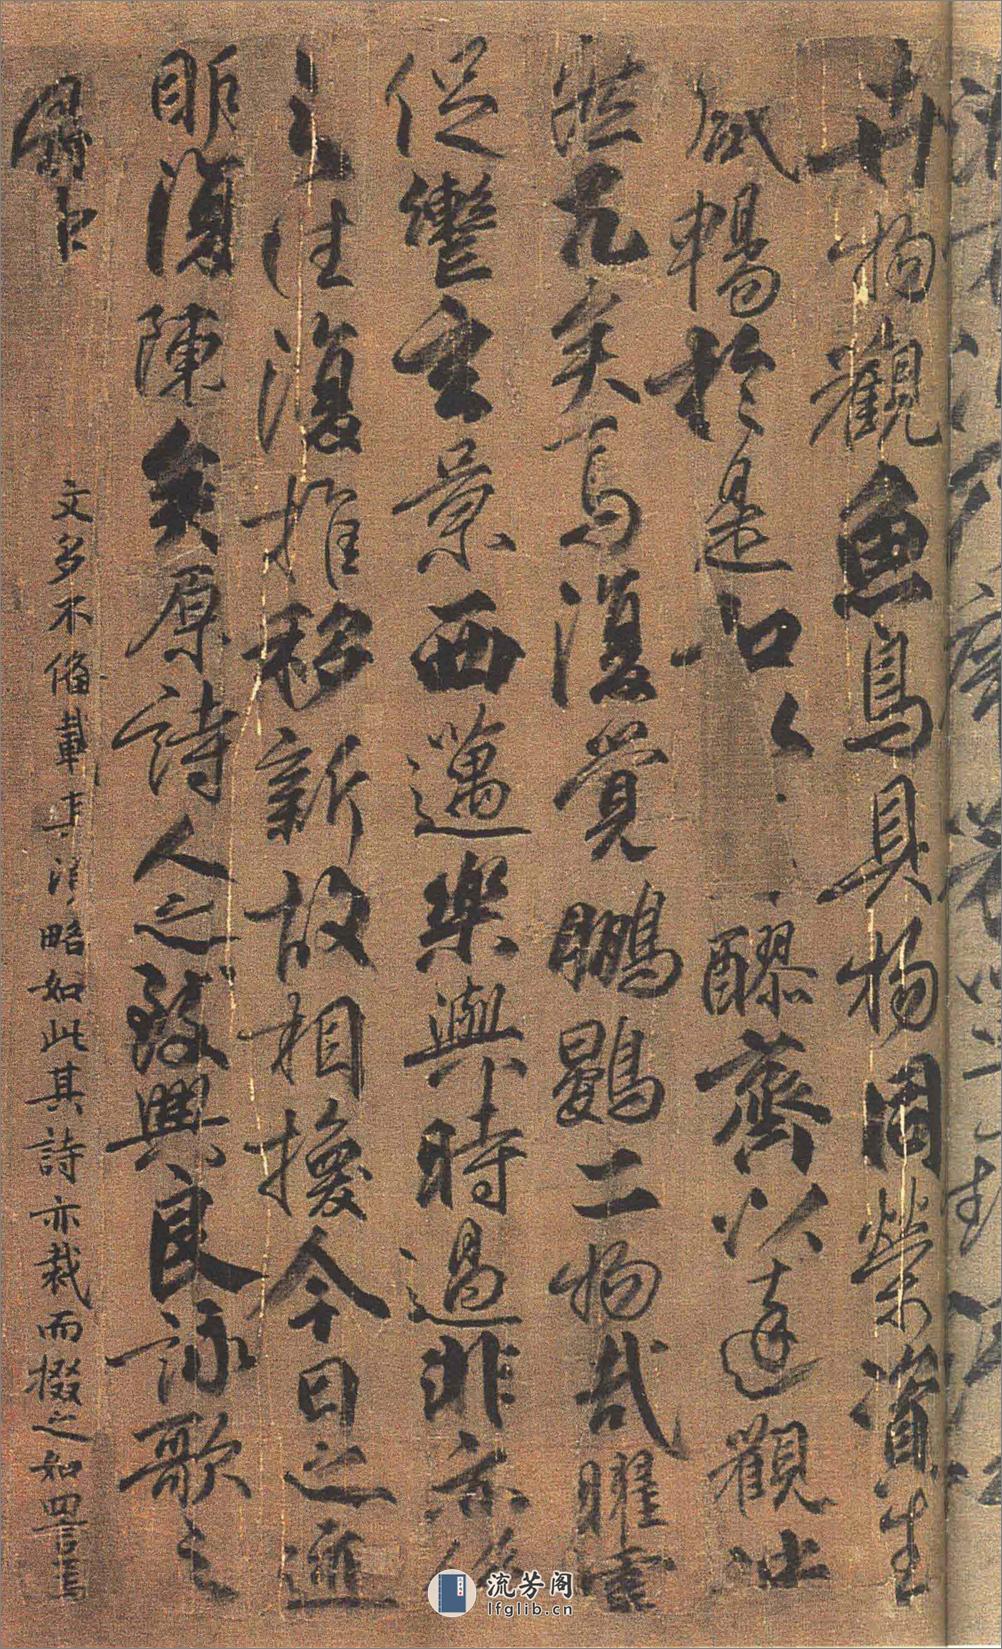 卉物觀魚鳥具物同榮資生
咸暢於是和醪齊以達觀決
然兀矣焉復覺鵬鷃二物哉耀靈
促轡玄景西邁樂與時過悲亦係
之往復推移新故相換今日之迹
明復陳矣原詩人之致興良詠歌之
有由
文多不備載其略如此其詩亦裁而掇之如四言焉
流芳阁
lfglib.cn